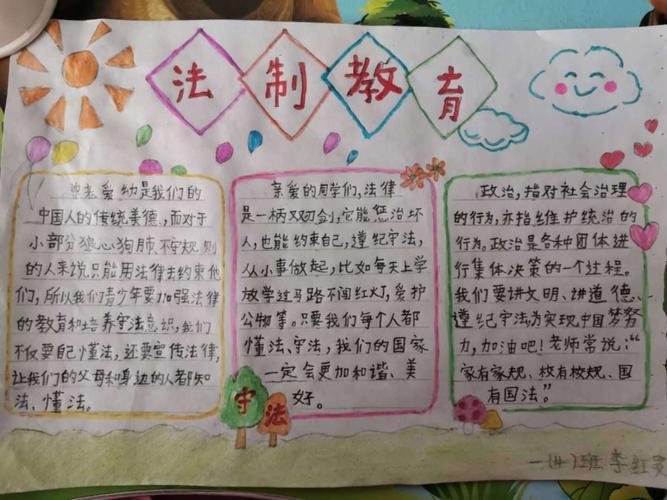 法制教育
老爱幼是我们的
中国人的传统美德,而对于
小部分狼心狗肺不守规则
的人来说只能用法律去约束他
们,所以我们青少年要加强法律
的教育和培养守法意识,我们
不仅要自己懂法,还要宣传法律,
让我们的父母和身边的人都知
法、懂法。
亲爱的同学们,法律
是一柄双刃剑,它能惩治坏
人,也能约束自己,遵纪守法,
从小事做起,比如每天上学
放学过马路不闯红灯,爱护
公物等。只要我们每个人都
懂法、守法,我们的国家
一定会更加和谐、美
好。
守法
政治,指对社会治理
的行为,亦指维护统治的
行为。政治是各种团体进
行集体决策的一个过程。
我们要讲文明、讲道德、
遵纪守法为实现中国梦努
力,加油吧!老师常说:“
家有家规、校有校规、国
有国法”。
一(4)班 李红